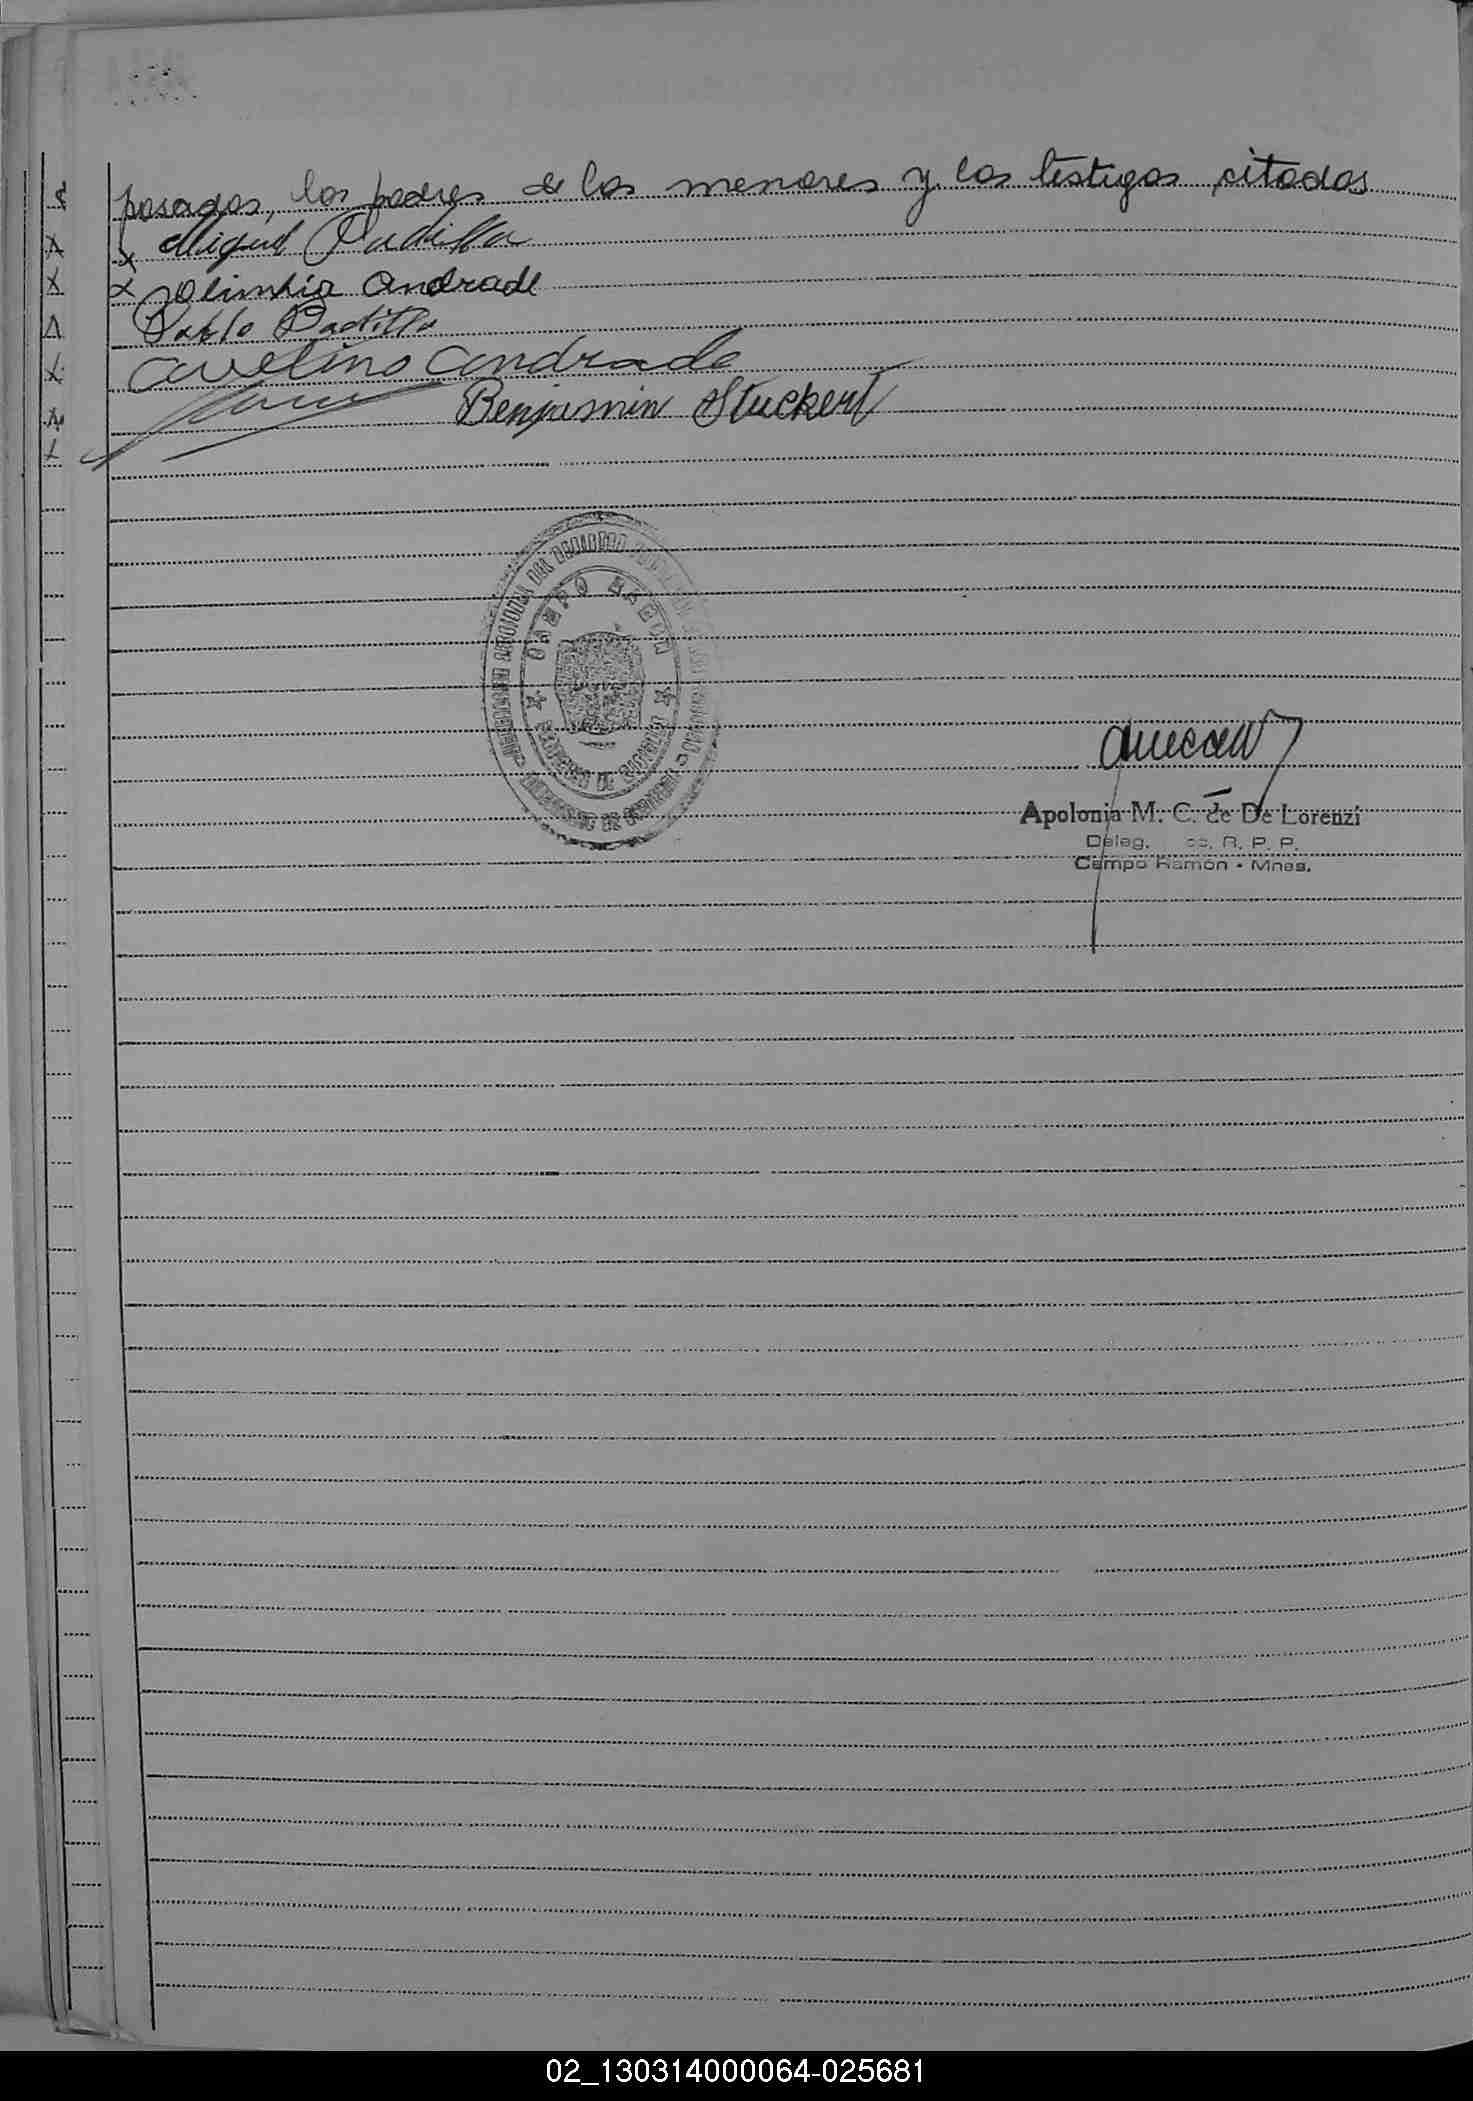 posados, los padres de los menores y los testigos citados
x Miguel Padilla
x Olimpia Andrade
Pablo Padilla
Avelino Andrade
Benjamin Stuckert
CAMPO RAMON
Apolonia M. C. de De Lorenzi
Deleg. R. P. P.
Campo Ramón - Mnes.
02_130314000064-025681